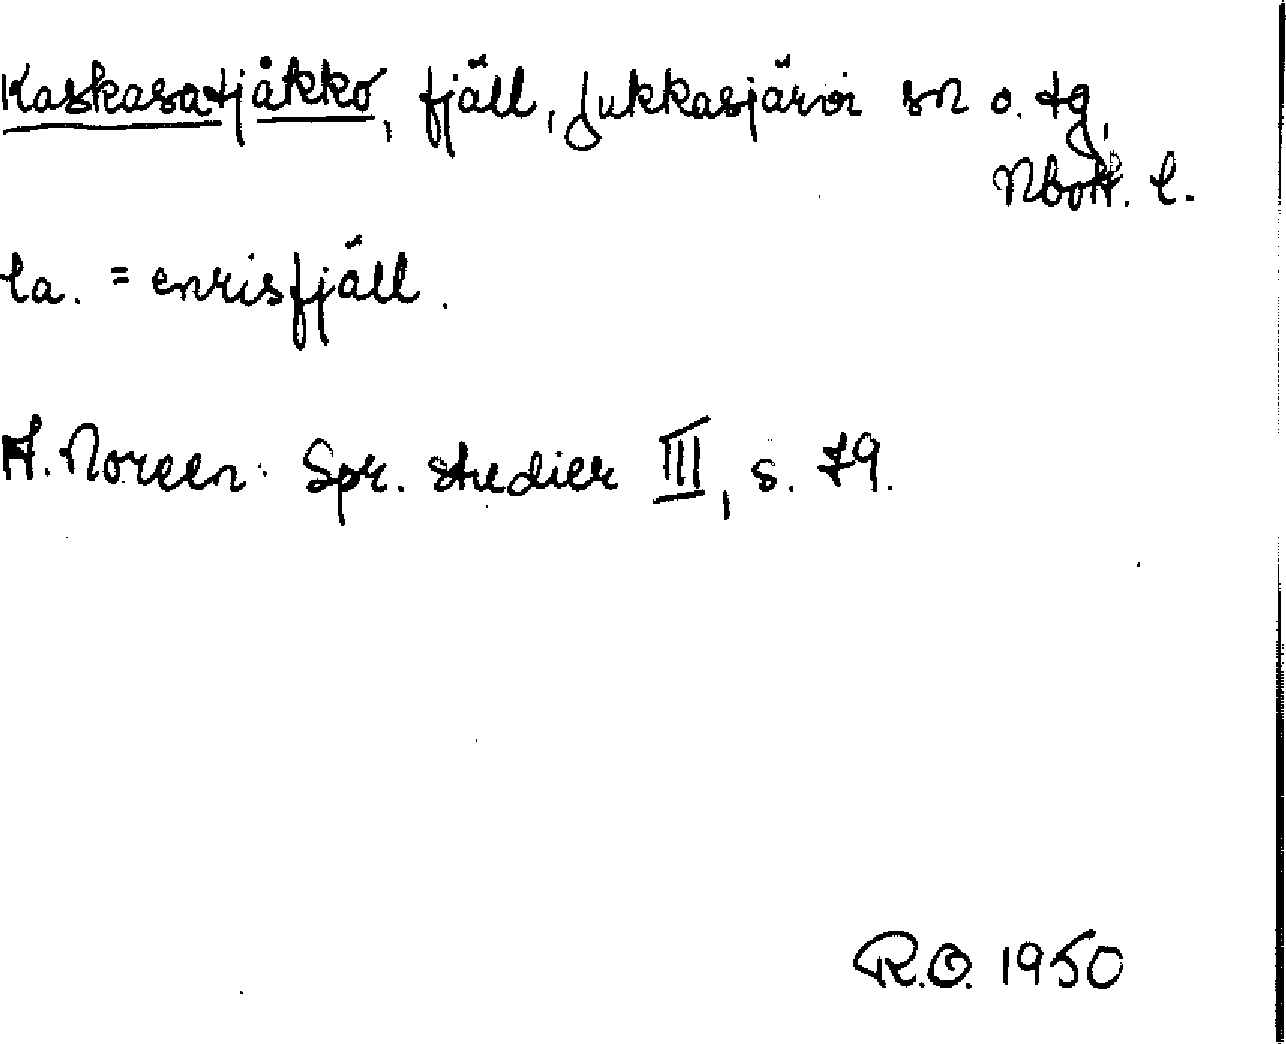 Kaskasatjåkko, fjäll, Jukkasjärvi sn o. tg,
Nbott. l.
la. = enrisfjäll.
A. Noreen: Spr. studier III, s. 79.
R.O. 1950